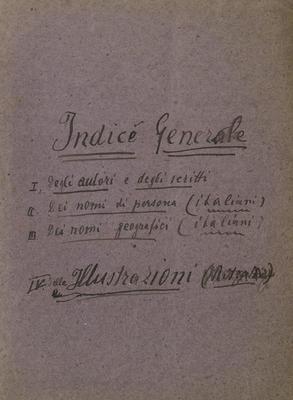 Indice Generale
I. Degli autori e degli scritti
II. Dei nomi di persona (italiani)
III. Dei nomi geografici (italiani)
IV. delle Illustrazioni